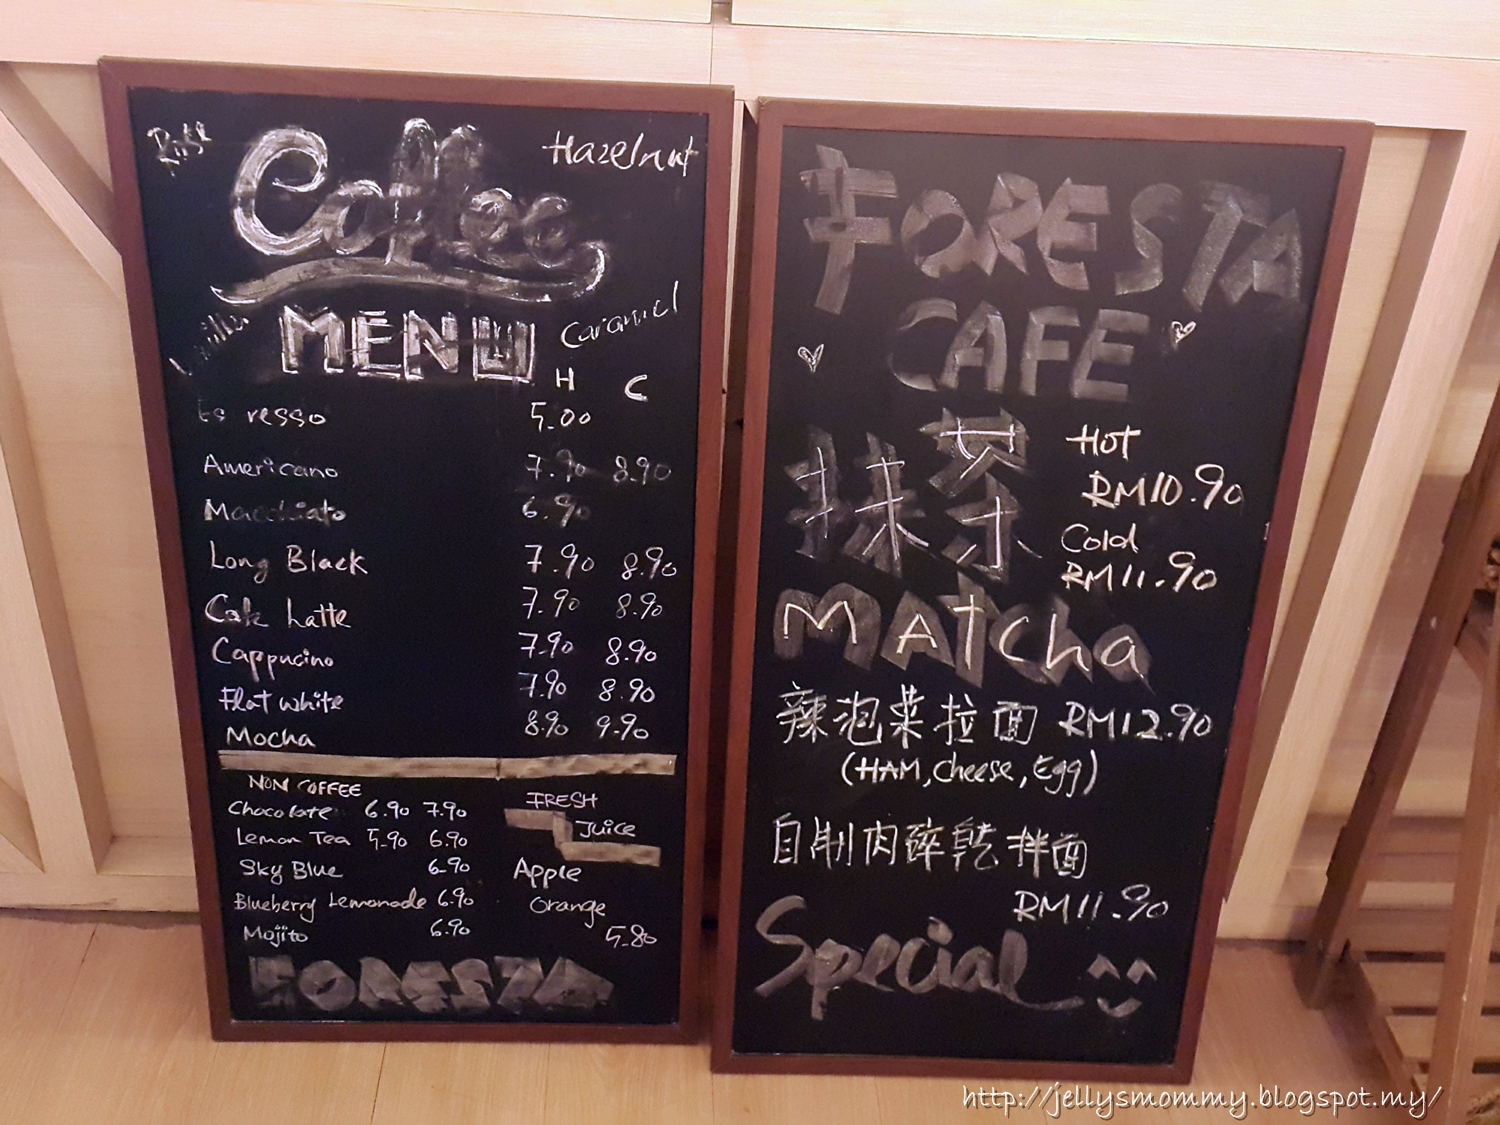 Rose
Hazelnut
Coffee
Vanilla
MENU
Caramel
H C
Es resso 5.00
Americano 7.90 8.90
Macchiato 6.90
Long Black 7.90 8.90
Latte 7.90 8.90
Cappucino 7.90 8.90
Flat white 7.90 8.90
Mocha 8.90 9.90
NON COFFEE
Chocolate 6.90 7.90
Lemon Tea 5.90 6.90
Sky Blue 6.90
Blueberry Lemonade 6.90
Mojito 6.90
FRESH
Juice
Apple
Orange
5.80
FORESTA
FORESTA
CAFE
抹茶
Hot
RM10.90
Cold
RM11.90
MATcha
辣泡菜拉面 RM12.90
(HAM, cheese, Egg)
自制肉碎乾拌面
RM11.90
Special
http://jellysmommy.blogspot.my/